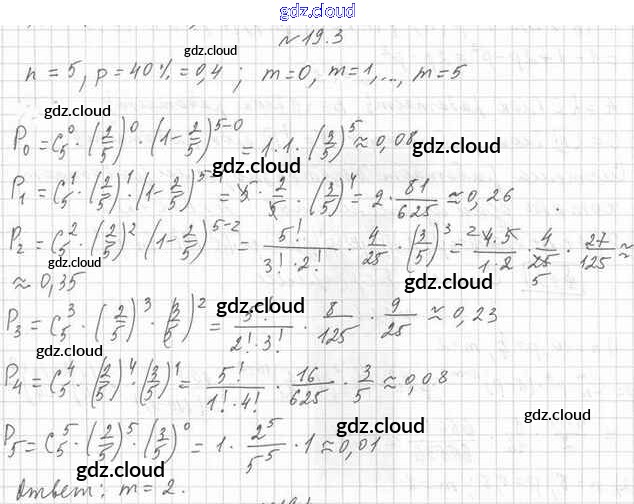 gdz.cloud
№ 19.3
gdz.cloud
n = 5, p = 40% = 0,4 ; m=0, m=1,..., m=5
gdz.cloud
P₀ = C₅⁰ · (2/5)⁰ · (1 - 2/5)⁵⁻⁰ = 1 · 1 · (3/5)⁵ ≈ 0,08
gdz.cloud
gdz.cloud
P₁ = C₅¹ · (2/5)¹ (1 - 2/5)⁵⁻¹ = 5 · 2/5 · (3/5)⁴ = 2 · 81/625 ≈ 0,26
gdz.cloud
P₂ = C₅² · (2/5)² (1 - 2/5)⁵⁻² = 5!/(3! · 2!) · 4/25 · (3/5)³ = 4·5/(1·2) · 4/25 · 27/125 ≈
gdz.cloud
≈ 0,35
gdz.cloud
P₃ = C₅³ · (2/5)³ · (3/5)² = 5!/(2! · 3!) · 8/125 · 9/25 ≈ 0,23
gdz.cloud
gdz.cloud
P₄ = C₅⁴ · (2/5)⁴ · (3/5)¹ = 5!/(1! · 4!) · 16/625 · 3/5 ≈ 0,08
gdz.cloud
P₅ = C₅⁵ · (2/5)⁵ · (3/5)⁰ = 1 · 2⁵/5⁵ · 1 ≈ 0,01
gdz.cloud
gdz.cloud
gdz.cloud
Ответ: m = 2.